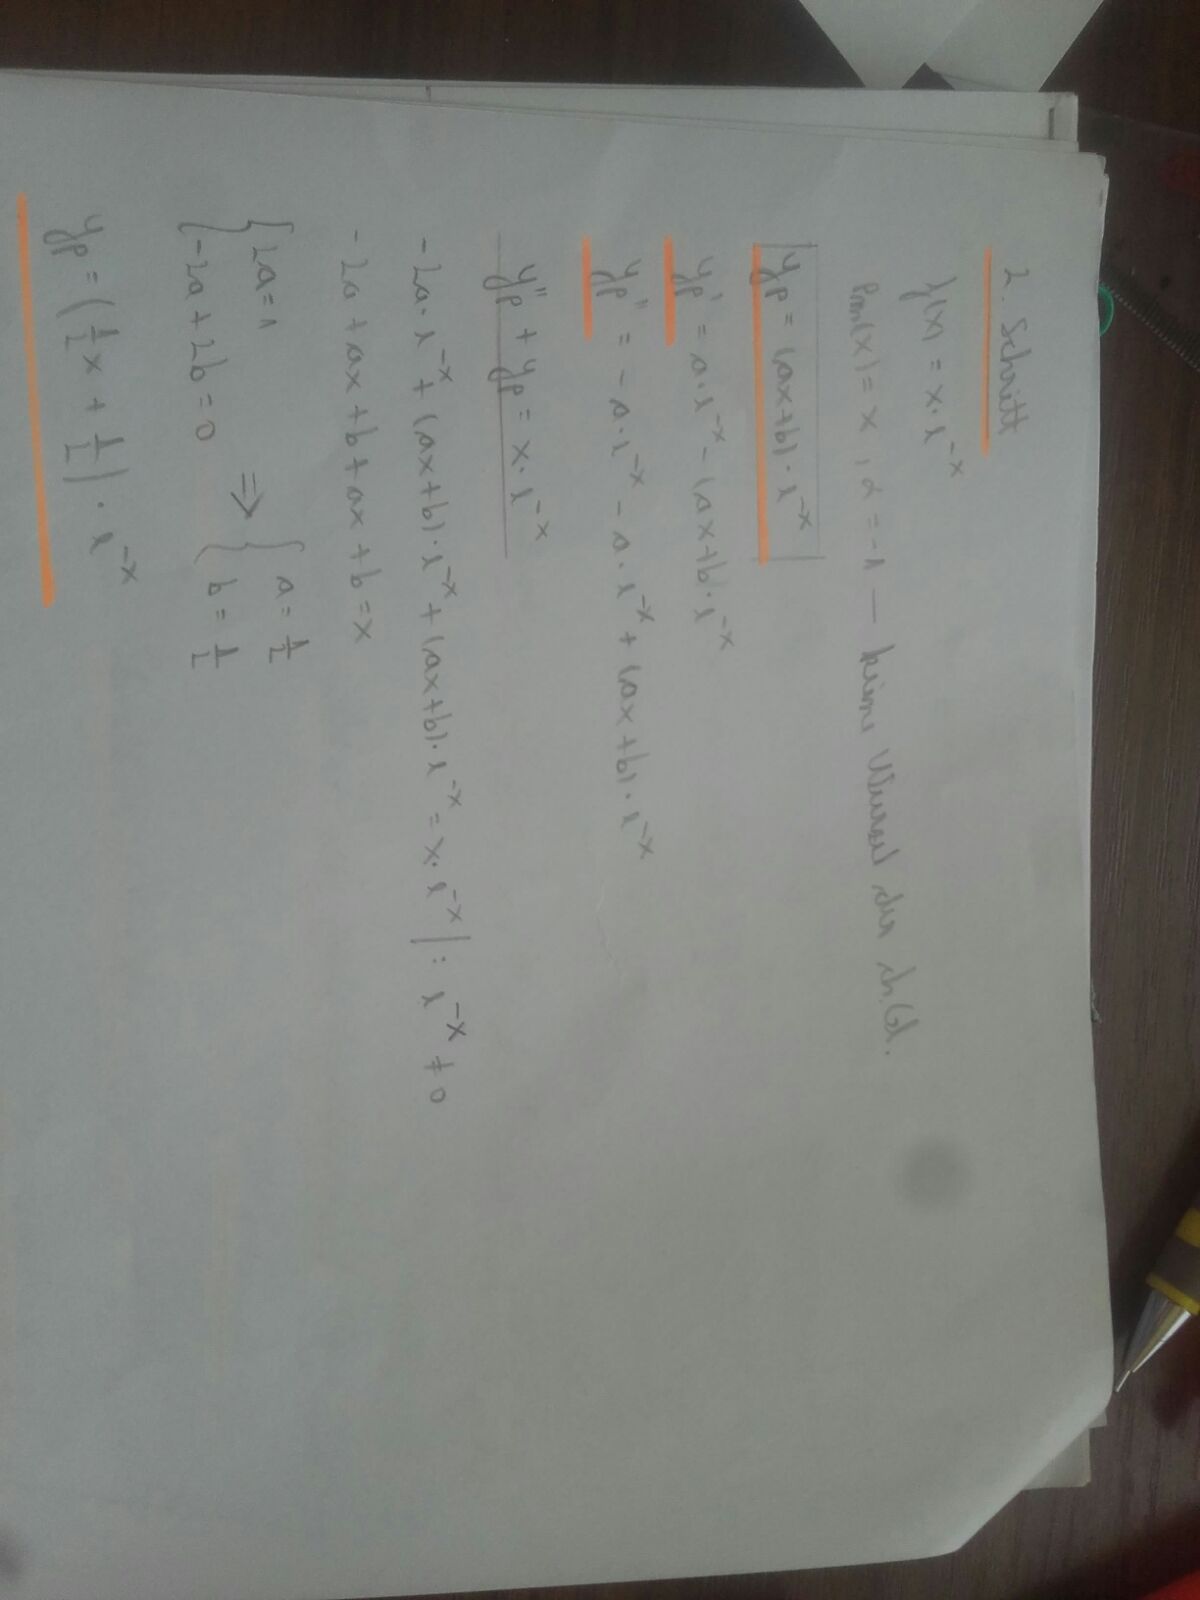 2. Schritt
f(x) = x · e^{-x}
Pm(x) = x , α = -1 — keine Wurzel der ch. Gl.
yp = (ax+b) · e^{-x}
yp' = a · e^{-x} - (ax+b · e^{-x}
yp'' = - a · e^{-x} - a · e^{-x} + (ax+b) · e^{-x}
yp'' + yp = x · e^{-x}
- 2a · e^{-x} + (ax+b) · e^{-x} + (ax+b) · e^{-x} = x · e^{-x} | : e^{-x} ≠ 0
- 2a + ax + b + ax + b = x
{ 2a = 1 ⇒ { a = 1/2
{ -2a + 2b = 0 { b = 1/2
yp = (1/2 x + 1/2) · e^{-x}